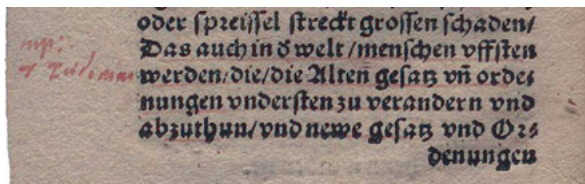 oder spreissel streckt grossen schaden/
Das auch in d̾ welt/menschen vffsten
werden/die/die Alten gesatz vñ ordes
nungen vndersten zu verandern vnd
abzuthun/vnd newe gesatz vnd Or⸗
denungen